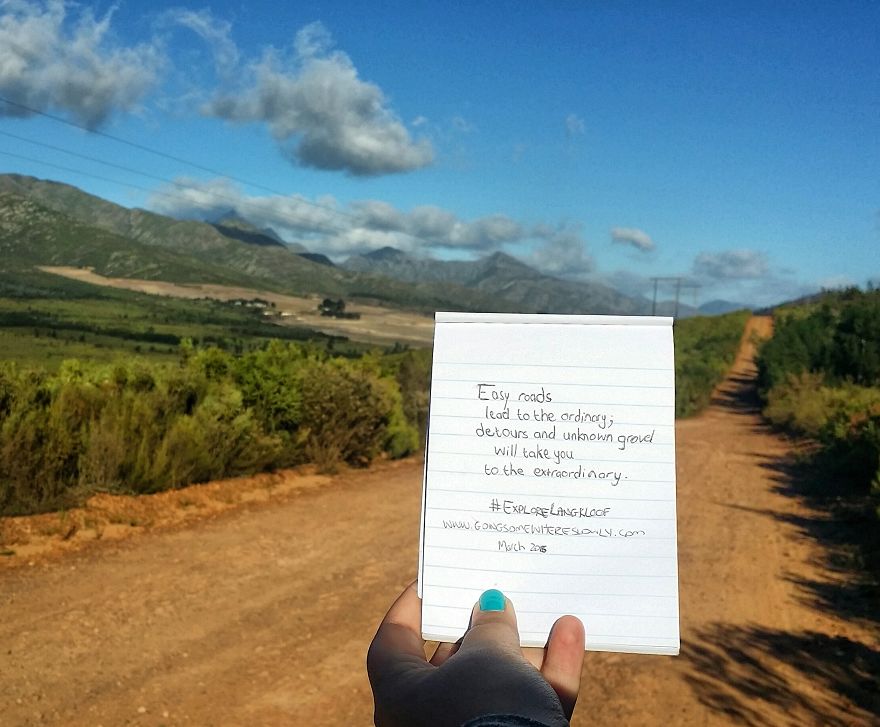 Easy roads
lead to the ordinary;
detours and unknown gravel
will take you
to the extraordinary.
#EXPLORELANGKLOOF
WWW.GOINGSOMEWHERESLOWLY.com
March 2016